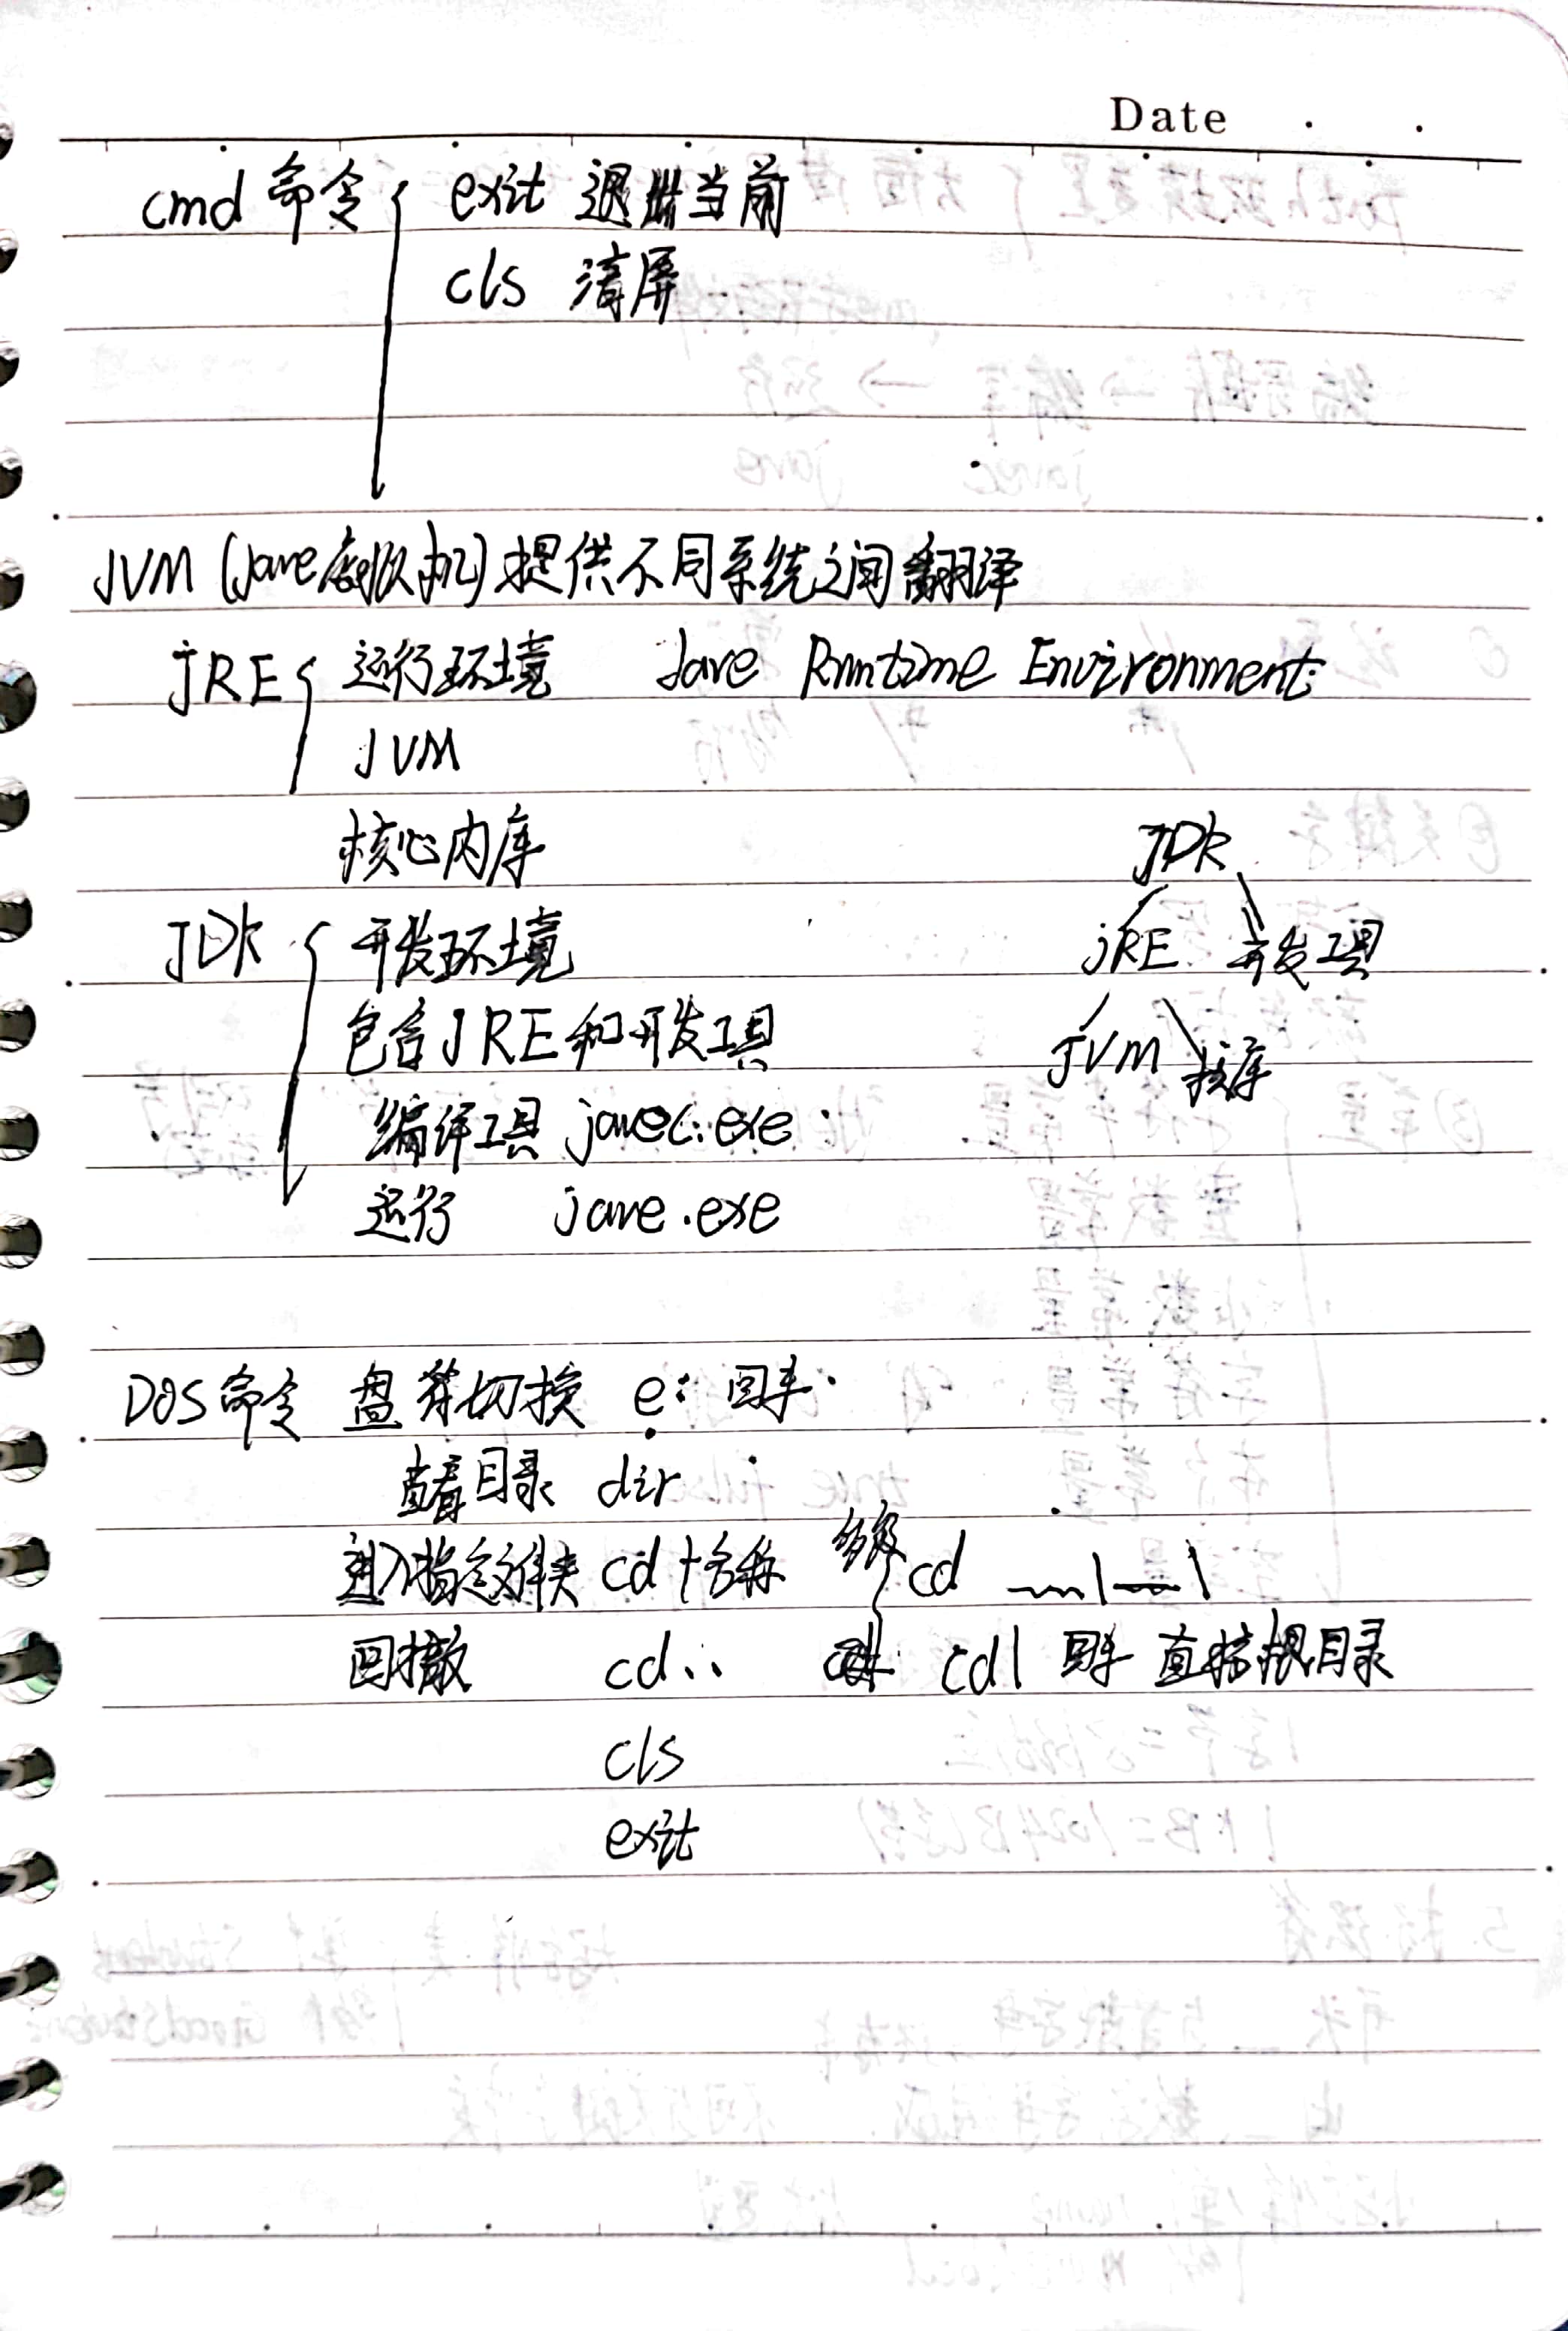 Date
cmd 命令 { exit 退出当前
cls 清屏
JVM (Java虚拟机) 提供不同系统之间翻译
JRE { 运行环境 Jave Runtime Environment
JVM
核心内库
JDK { 开发环境
包含JRE和开发工具
编译工具 javec.exe
运行 jave.exe
JDK
JRE 开发工具
JVM 核库
DOS命令 盘符切换 e: 回车
查看目录 dir
进入指定文件夹 cd+名称 多级 cd
回撤 cd.. cd\ 回车 直接根目录
cls
exit